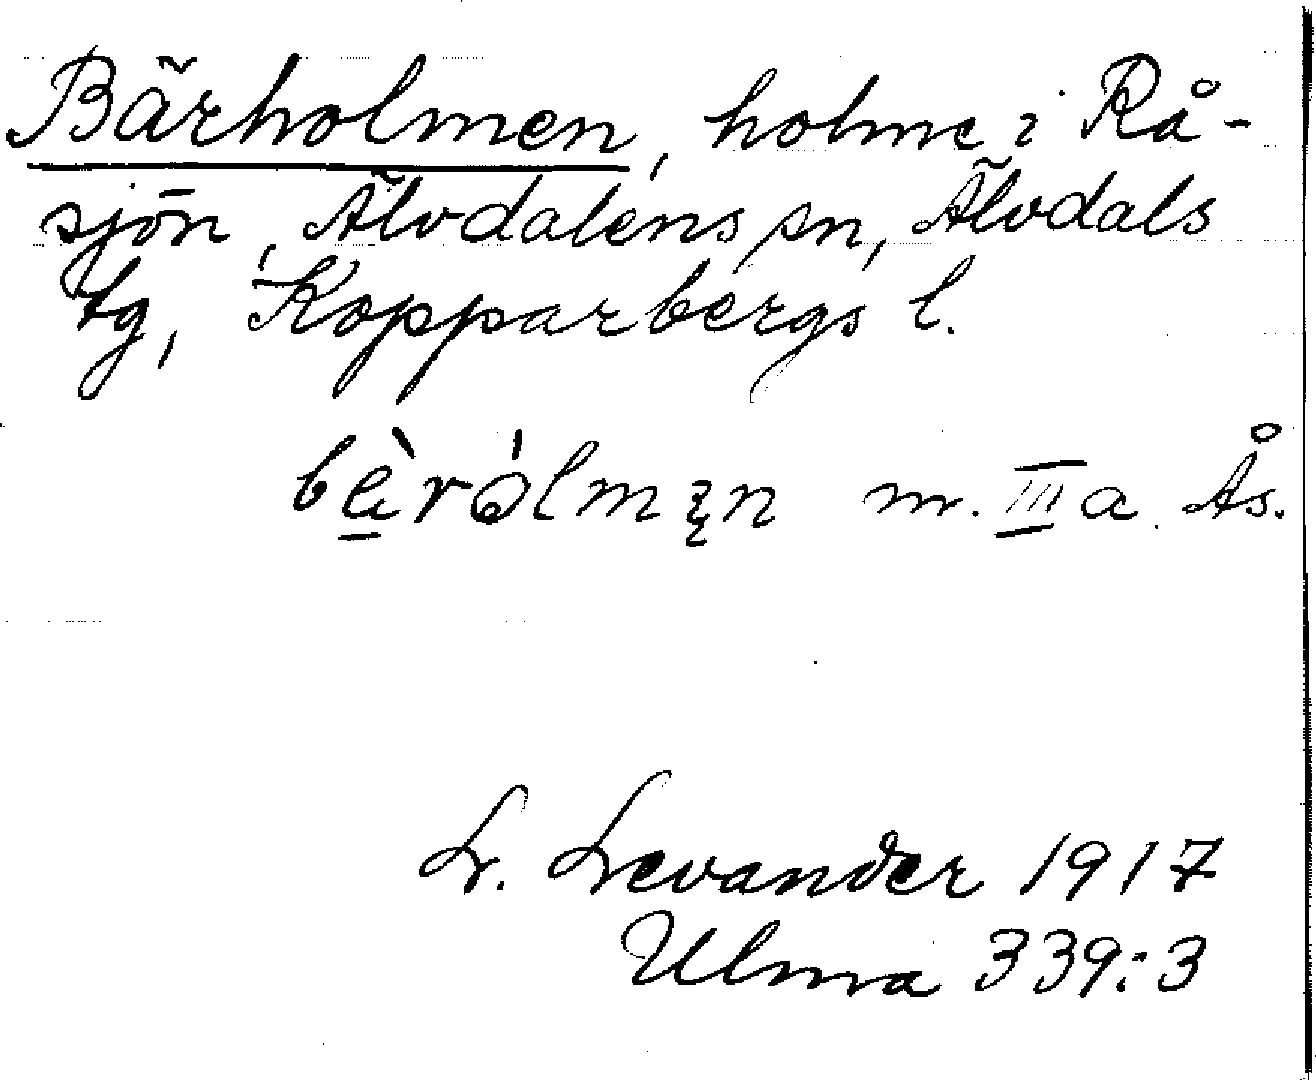 Bärholmen, holme i Rå-
sjön, Älvdalens sn, Älvdals
tg, Kopparbergs l.
m. III a. Ås.
L. Levander 1917
Ulma 339:3